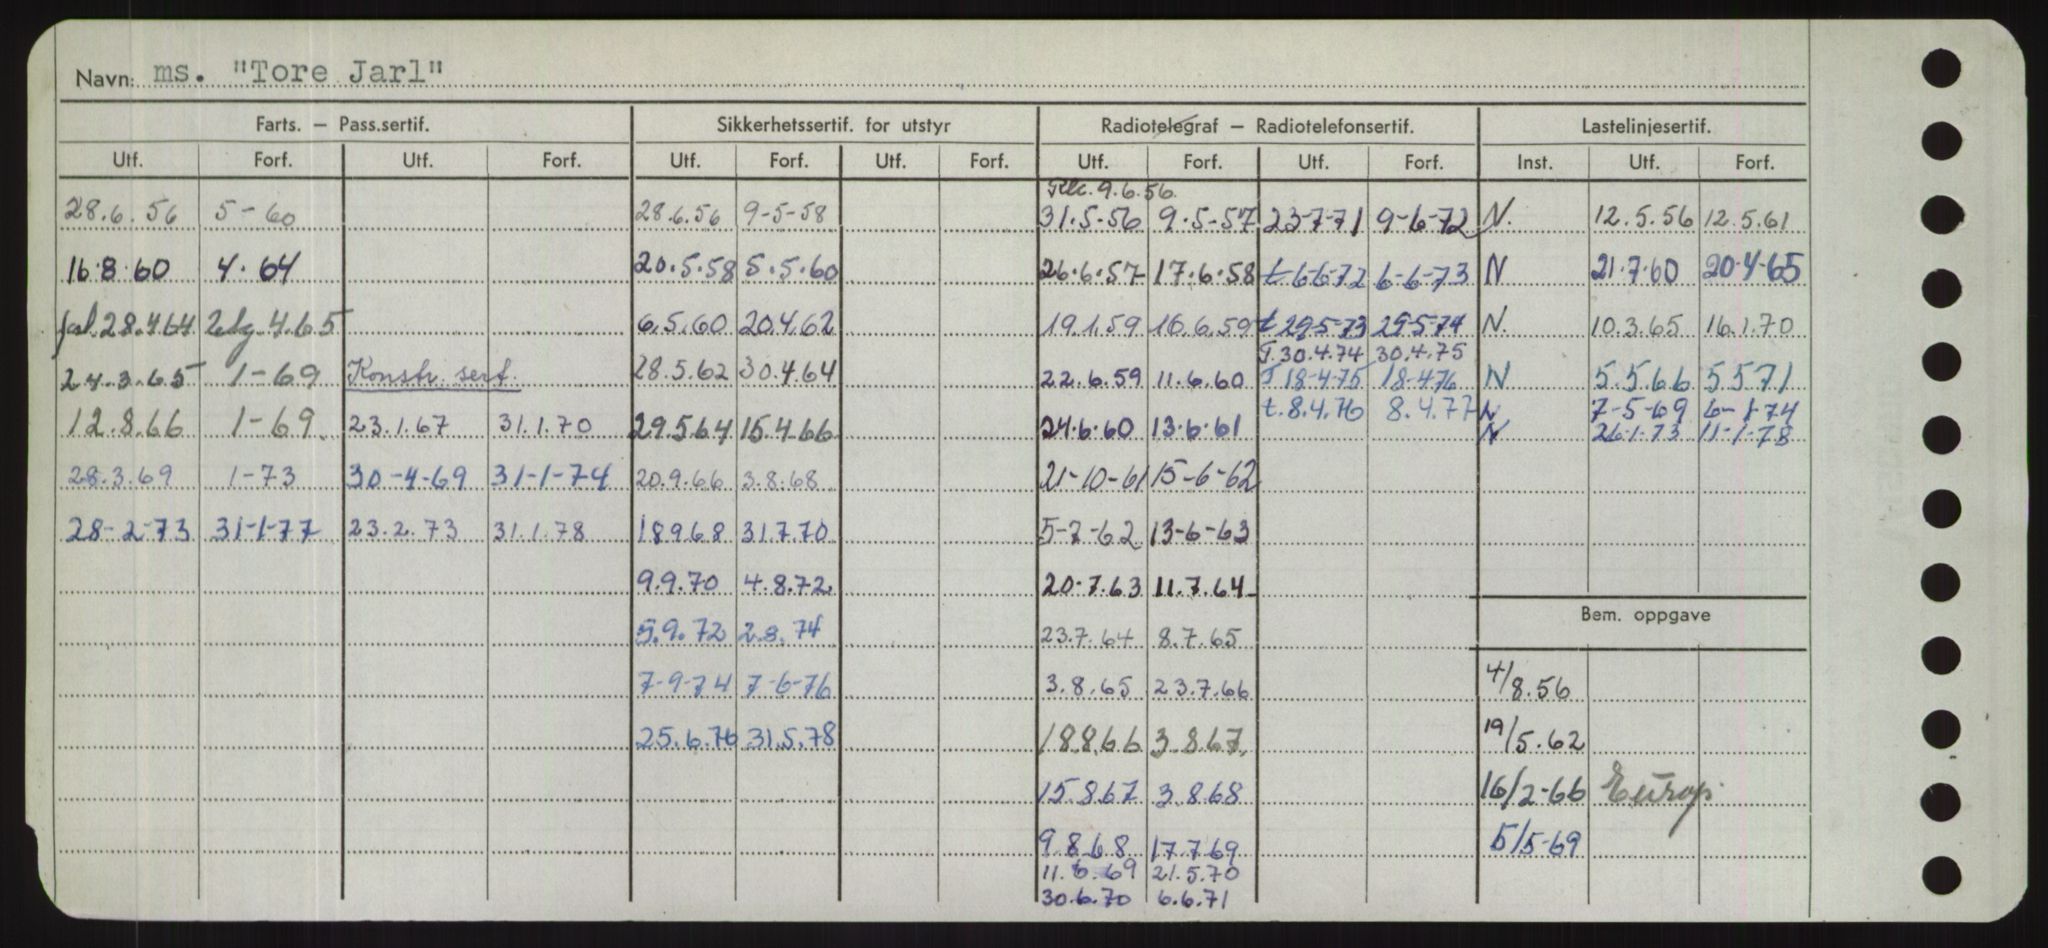 Navn: ms. "Tore Jarl"
Farts. — Pass.sertif. Sikkerhetssertif. for utstyr Radiotelegraf — Radiotelefonsertif. Lastelinjesertif.
Utf. Forf. Utf. Forf. Utf. Forf. Utf. Forf. Utf. Forf. Utf. Forf. Inst. Utf. Forf.
9.6.56.
28.6.56 5-60 28.6.56 9-5-58 31.5-56 9.5-57 23-7-71 9-6-72 N. 12.5.56 12.5.61
16.8.60 4.64 20.5.58 5.5.60 26.6.57 17.6.58 t 6-6-72 6-6-73 N 21.7.60 20.4-65
28.4.64 4.65 6.5.60 20.4.62 19.1.59 16.6.59 t 29-5-73 29-5-74 N. 10.3.65 16.1.70
T. 30.4.74 30.4.75
24.3.65 1-69 Konstr. sert. 28.5.62 30.4.64 22.6.59 11.6.60 T 18-4-75 18-4-76 N 5.5.66 5.5.71
t. 8.4.76 8.4.77 N 7-5-69 6-1-74
12.8.66 1-69. 23.1.67 31.1.70 29.5.64 15.4.66 24.6.60 13.6.61 N 26-1-73 11-1-78
28.3.69 1-73 30-4-69 31-1-74 20.9.66 3.8.68 21-10-61 15-6-62
28-2-73 31-1-77 23.2.73 31.1.78 18.9.68 31.7.70 5-7-62 13-6-63
9.9.70 4.8.72. 20.7.63 11.7.64
Bem. oppgave
5.9.72 2.8.74 23.7.64 8.7.65
7-9-74 7-6-76 3.8.65 23.7.66 4/8.56
25.6.76 31.5.78 18.8.66 3.8.67. 19/5.62
15.8.67 3.8.68 16/2-66 Europ.
9.8.68 17.7.69 5/5-69
11.6.69 21.5.70
30.6.70 6.6.71